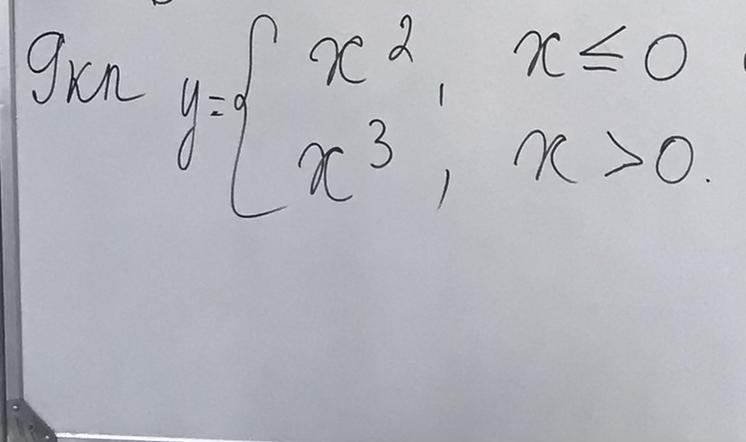 9кл y = { x², x ≤ 0
x³, x > 0.